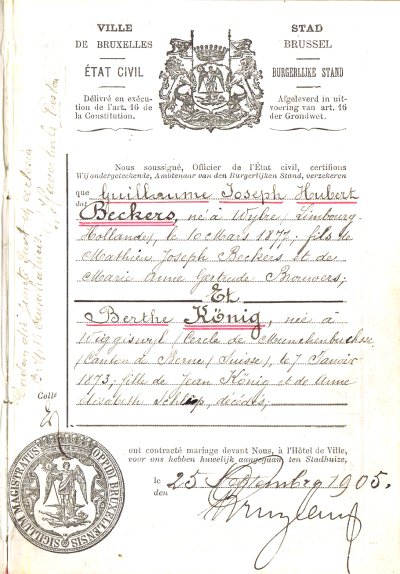 VILLE
DE BRUXELLES
ÉTAT CIVIL
Délivré en exécu-
tion de l'art. 16 de
la Constitution.
STAD
BRUSSEL
BURGERLIJKE STAND
Afgeleverd in uit-
voering van art. 16
der Grondwet.
Nous soussigné, Officier de l'État civil, certifions
Wij ondergeteekende, Ambtenaar van den Burgerlijken Stand, verzekeren
que Guillaume Joseph Hubert
dat
Beckers, né à Wylre (Limbourg
Hollande), le 10 Mars 1877; fils de
Mathieu Joseph Beckers et de
Marie Anne Gertrude Brouwers;
Et
Berthe König, née à
Wiggiswyl (Cercle de Munchenbuchsee
Canton de Berne (Suisse), le 7 Janvier
1873; fille de Jean König et de Anne
Elisabeth, décédés;
Colle
ont contracté mariage devant Nous, à l'Hôtel de Ville,
voor ons hebben huwelijk aangegaan ten Stadhuize,
le 25 Septembre 1905.
den
SIGILLUM MAGISTRATUS OPPIDI BRUXELLENSIS